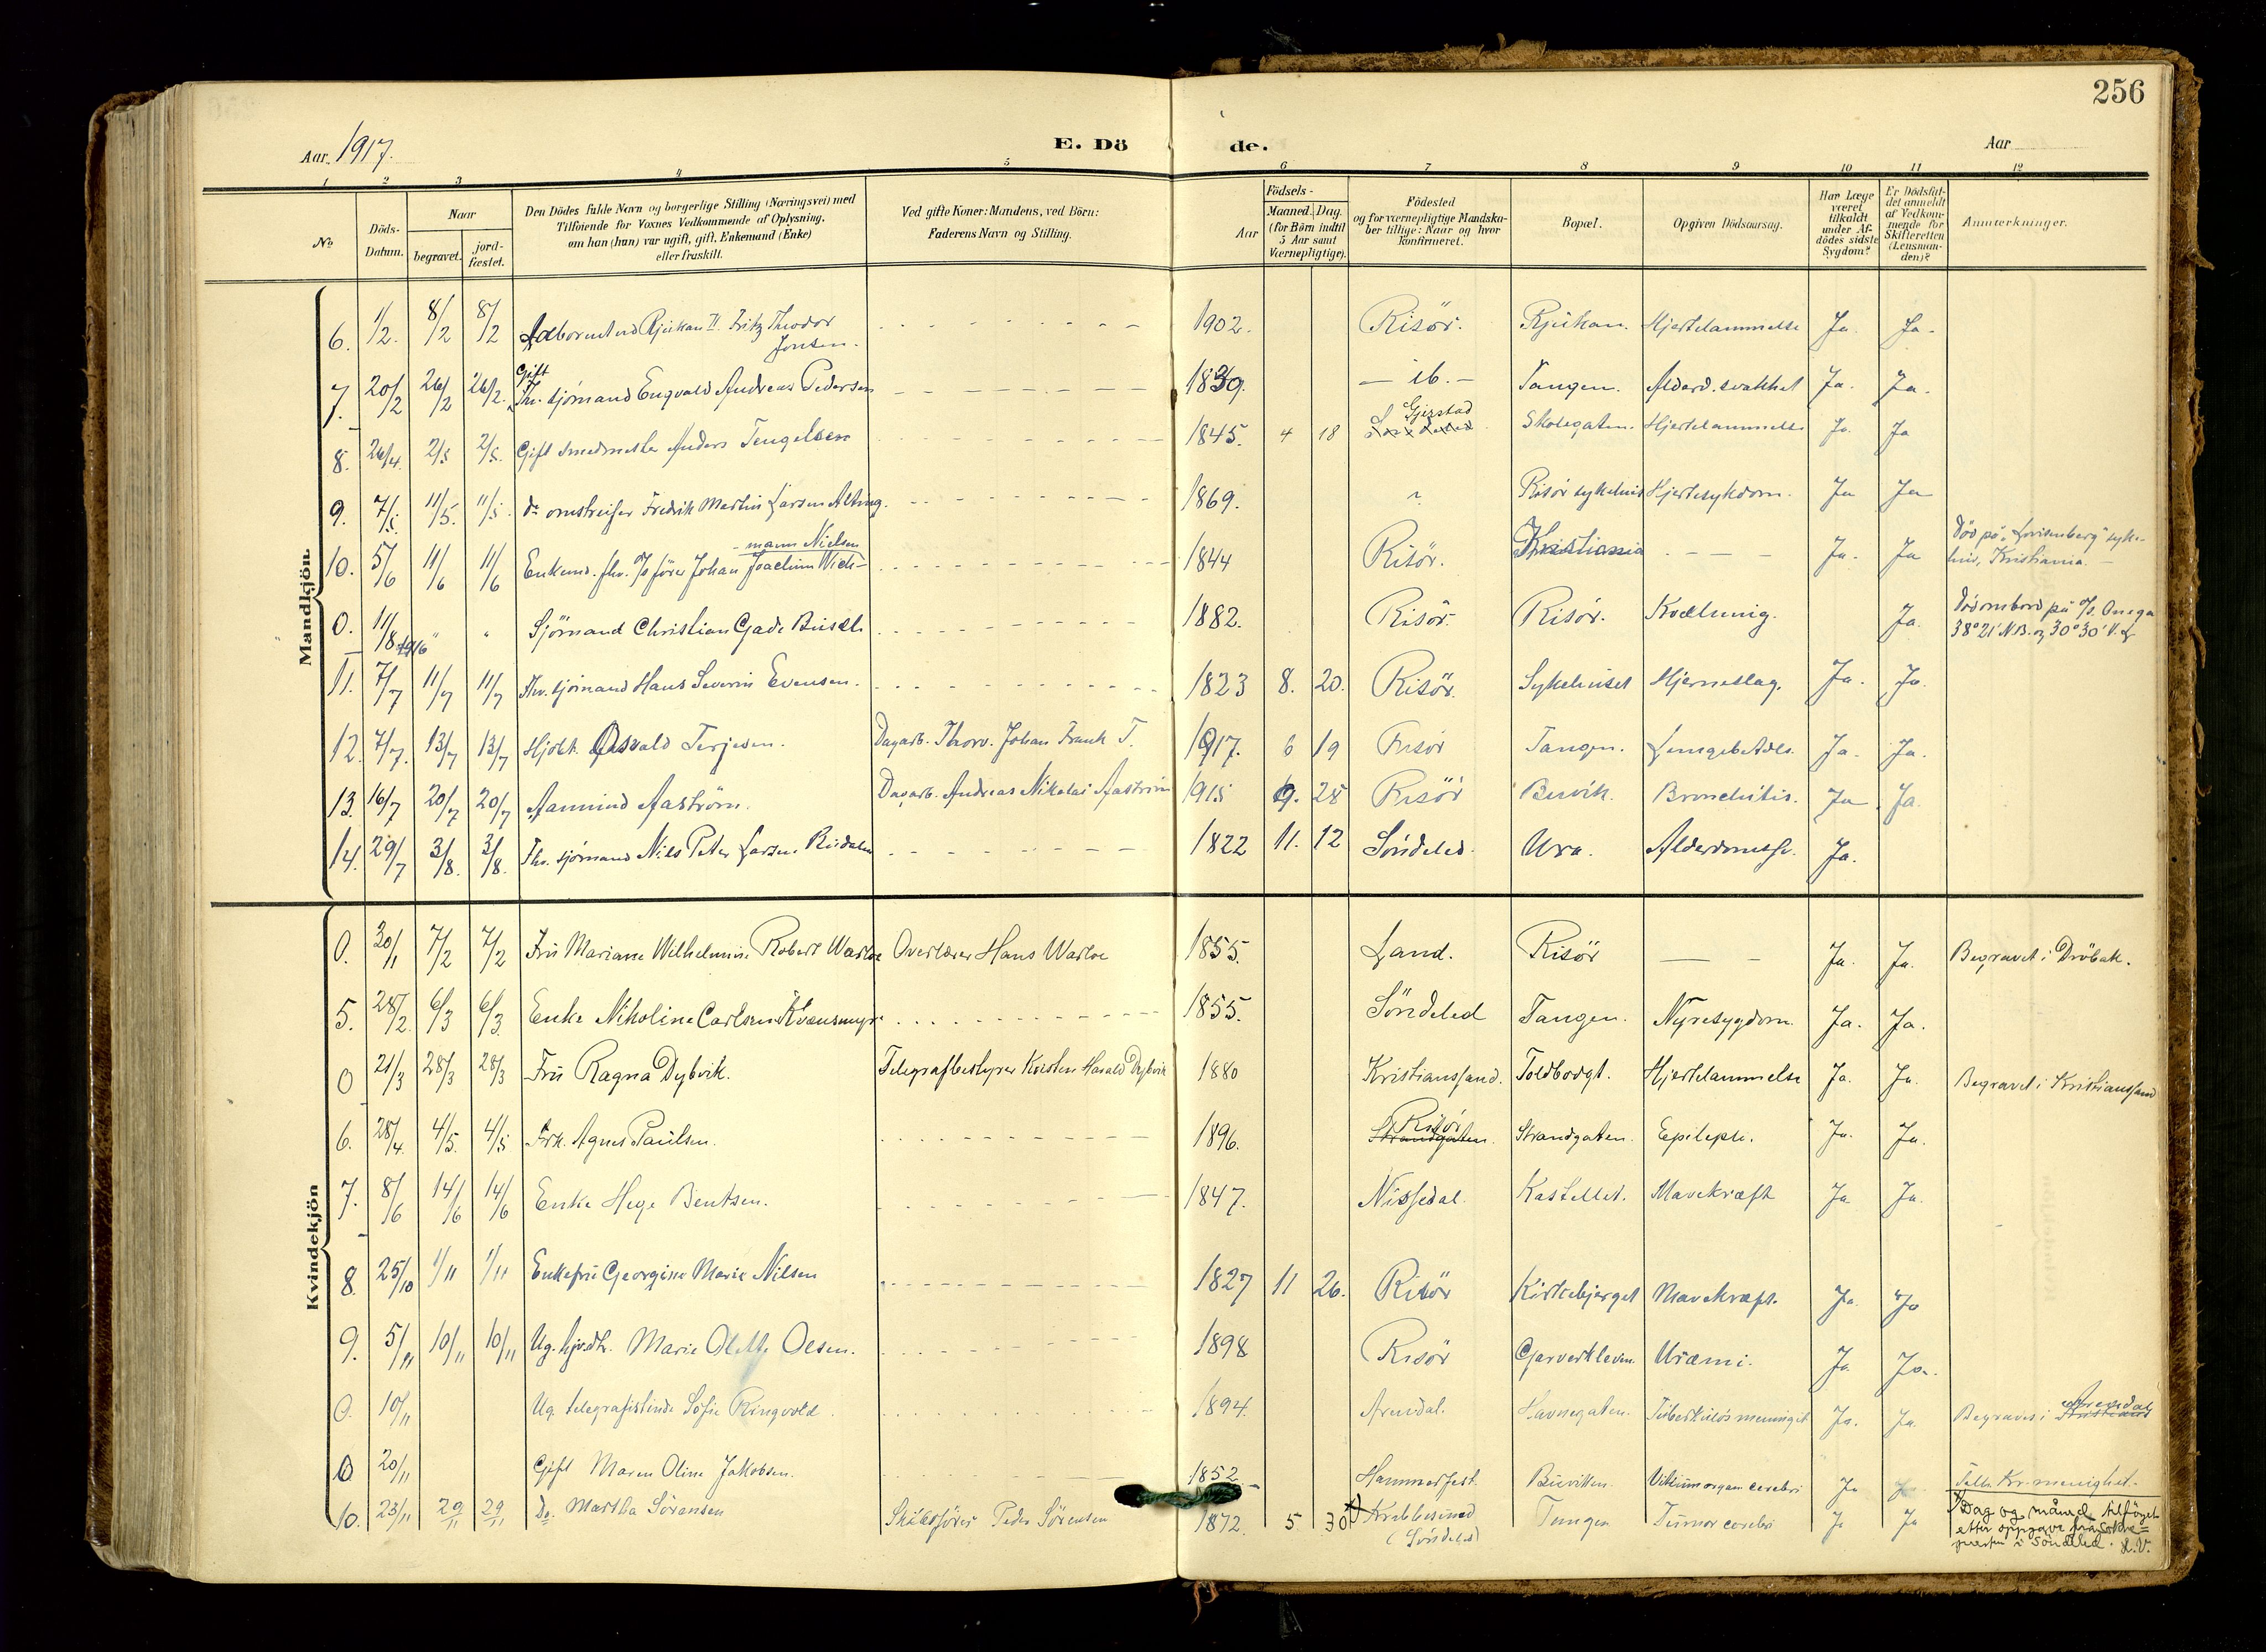 256
Aar 1917.
E. Dö de.
Aar
1 2 3 4 5 6 7 8 9 10 11 12
No
Döds-Datum.
Naar
begravet. jord-fæstet.
Den Dödes fulde Navn og borgerlige Stilling (Næringsvei) med
Tilföiende for Voxnes Vedkommende af Oplysning,
om han (hun) var ugift, gift, Enkemand (Enke)
eller fraskilt.
Ved gifte Koner: Mandens, ved Börn:
Faderens Navn og Stilling.
Födsels-
Aar Maaned. Dag.
(for Börn indtil
5 Aar samt
Værnepligtige).
Födested
og for værnepligtige Mandska-
ber tillige: Naar og hvor
konfirmeret.
Bopæl.
Opgiven Dödsaarsag.
Har Læge
været
tilkaldt
under Af-
dödes sidste
Sygdom?
Er Dödsfal-
det anmeldt
af Vedkom-
mende for
Skifteretten
(Lensman-
den)?
Anmærkninger.
Mandkjön.
6. 1/2. 8/2 8/2 Rjukan II. Fritz Theodor Jensen. 1902. Risör. Rjukan. Hjertelammelse Ja. Ja.
7. 20/2 26/2 26/2. Gift Fhv. sjömand Engvald Andreas Pedersen 1839. - ib. - Tangen. Alderd. svakhet Ja. Ja.
8. 26/4. 2/5 2/5. Gift smedmester Anders Tengelsen 1845. 4 18 Gjerstad Skolegaten. Hjertelammelse Ja. Ja
9. 7/5. 11/5. 11/5. do omstreifer Fredrik Martin Larsen Alting. 1869. ? Risör sykehus Hjertesykdom. Ja Ja
10. 5/6 11/6 11/6 Enkem. fhv. förer Johan Joachim Wich-mann Nielsen 1844 Risör. Kristiania - - - Ja. Ja Död på "Lovisenberg" syke-
hus, Kristiania. -
0. 11/8 1916 " " Sjömand Christian Gade Busch 1882. Risör Risör. Kvælning. Ja. Död ombord på S/S. Onega
38° 21' N.B. og 30° 30' V.L
11. 7/7 11/7 11/7 Fhv. sjömand Hans Severin Evensen. 1823 8. 20. Risör. Sykehuset Hjerneslag. Ja. Ja.
12. 7/7. 13/7 13/7 Hjdpt. Osvald Terjesen. Dagarb. Thorv. Johan Frank T. 1917. 6 19 Risör Tangen. Lungebetæn. Ja. Ja.
13. 16/7 20/7 20/7 Aanund Aaström. Dagarb. Andreas Nikolai Aaström 1915 9. 28 Risör Buvik. Bronchitis. Ja. Ja.
14. 29/7 3/8. 3/8. Fhv. sjömand Nils Peter Larsen Rödalen 1822 11. 12 Söndeled. Ura. Alderdomssv. Ja.
Kvindekjön
0. 30/1 7/2 7/2 Fru Mariane Wilhelmine Robert Warloe Overlærer Hans Warloe 1855. Land. Risör — — Ja. Ja. Begravet i Dröbak.
5. 28/2. 6/3 6/3 Enke Nikoline Carlsen Kvænsmyr 1855. Söndeled Tangen. Nyresygdom. Ja. Ja.
0 21/3 28/3 28/3 Fru Ragna Dybvik. Telegrafbestyrer Kristen Harald Dybvik 1880 Kristianssand. Toldbodgt. Hjertelammelse Ja. Ja. Begravet i Kristianssand
6. 28/4. 4/5. 4/5 Frk. Agnes Paulsen. 1896. Risör Strandgaten. Strandgaten. Epilepsi. Ja. Ja.
7. 8/6 14/6 14/6 Enke Hege Bentsen. 1847. Nissedal. Kastellet. Mavekræft Ja Ja.
8. 25/10 1/11 1/11 Enkefru Georgine Marie Nilsen 1827 11 26. Risör Kirkebjerget Mavekræft. Ja. Ja
9. 5/11 10/11 10/11 Ug. hjvdtr. Marie Olette Olsen. 1898 Risör Garverkleven. Uræmi. Ja Ja.
0. 10/11 Ug. telegrafistinde Sofie Ringvold. 1894. Arendal. Havnegaten. Tuberkulös meningit Ja. Ja. Begraves i Arendal
0 20/11 Gift Maren Oline Jakobsen. 1852 Hammerfest. Buvikken. Vitium organ cerebri Ja Fælles Kr. menighet.
10. 23/11 29/11 29/11 Do. Martha Sörensen Skibsförer Peder Sörensen 1872. 5 30 x) Krabbesund
(Söndeled) Tangen Tumor cerebri Ja Ja x) Dag og måned tilföyet
etter oppgave fra sokne-
presten i Söndeled. L.V.